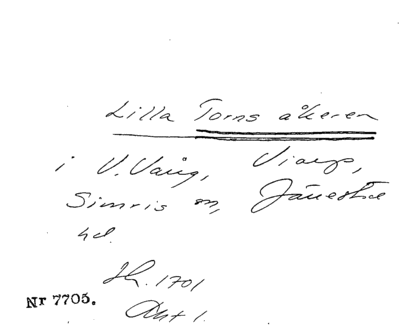 Lilla Torns åkeren
i V. Vång, Viarps,
Simris sn, Järrestad
hd.
Jb. 1701
Akt 1.
Nr 7705.